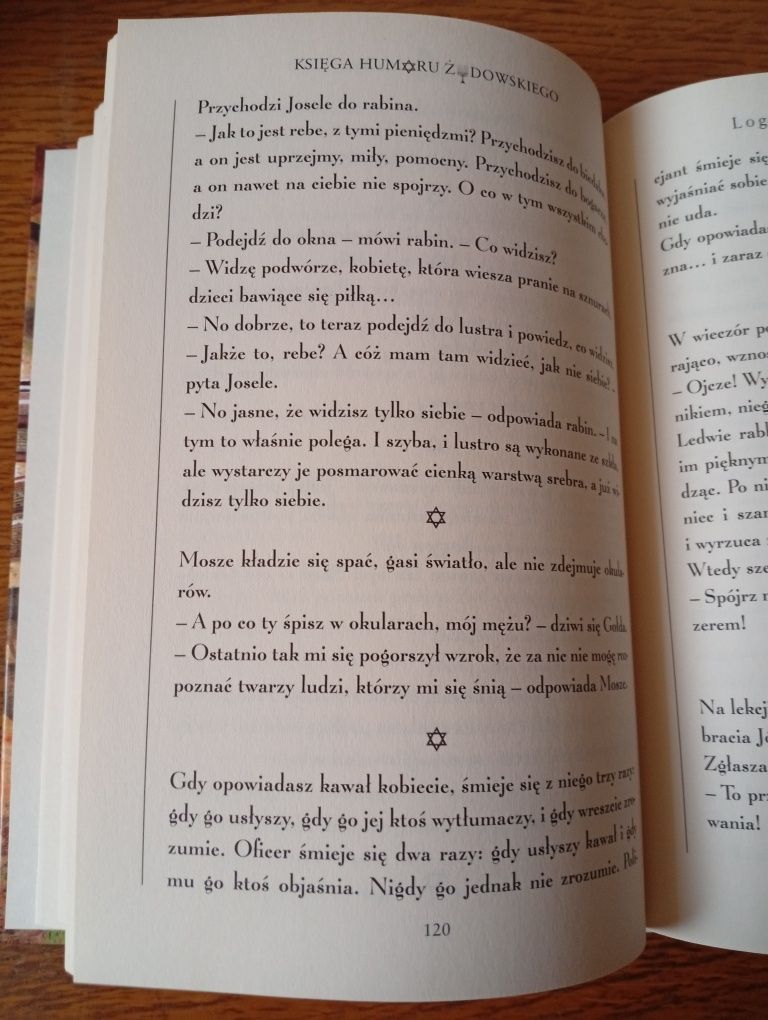 KSIĘGA HUMORU ŻYDOWSKIEGO
Przychodzi Josele do rabina.
– Jak to jest rebe, z tymi pieniędzmi? Przychodzisz do biedaka,
a on jest uprzejmy, miły, pomocny. Przychodzisz do bogacza,
a on nawet na ciebie nie spojrzy. O co w tym wszystkim cho-
dzi?
– Podejdź do okna – mówi rabin. – Co widzisz?
– Widzę podwórze, kobietę, która wiesza pranie na sznurach,
dzieci bawiące się piłką…
– No dobrze, to teraz podejdź do lustra i powiedz, co widzisz.
– Jakże to, rebe? A cóż mam tam widzieć, jak nie siebie? –
pyta Josele.
– No jasne, że widzisz tylko siebie – odpowiada rabin. – I na
tym to właśnie polega. I szyba, i lustro są wykonane ze szkła,
ale wystarczy je posmarować cienką warstwą srebra, a już wi-
dzisz tylko siebie.
Mosze kładzie się spać, gasi światło, ale nie zdejmuje okula-
rów.
– A po co ty śpisz w okularach, mój mężu? – dziwi się Golda.
– Ostatnio tak mi się pogorszył wzrok, że za nic nie mogę roz-
poznać twarzy ludzi, którzy mi się śnią – odpowiada Mosze.
Gdy opowiadasz kawał kobiecie, śmieje się z niego trzy razy:
gdy go usłyszy, gdy go jej ktoś wytłumaczy, i gdy wreszcie zro-
zumie. Oficer śmieje się dwa razy: gdy usłyszy kawał i gdy
mu go ktoś objaśnia. Nigdy go jednak nie zrozumie. Poli-
120
Log
ejant śmieje się
wyjaśniać sobie
nie uda.
Gdy opowiada
zna… i zaraz
W wieczór po
rająco, wznos
– Ojcze! Wy
nikiem, nieg
Ledwie rab
im pięknym
dząc. Po ni
niec i szar
i wyrzuca
Wtedy sze
– Spójrz n
zerem!
Na lekcj
bracia Jo
Zgłasza
– To prz
wania!